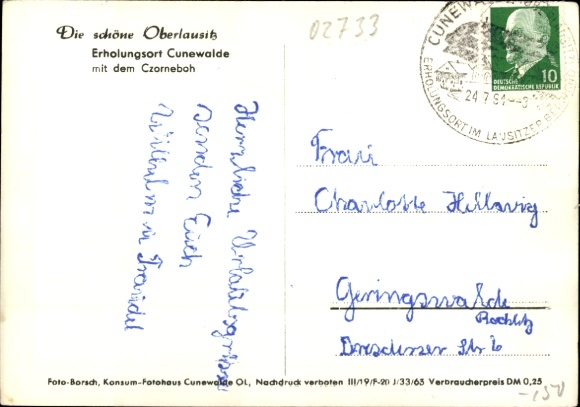 Die schöne Oberlausitz
Erholungsort Cunewalde
mit dem Czorneboh
02733
CUNEWALDE
ERHOLUNGSORT IM LAUSITZER BERGLAND
24.7.64.-8
DEUTSCHE
DEMOKRATISCHE REPUBLIK
10
Herzliche Urlaubsgrüße
senden Euch
Frau
Charlotte Hellwig
Geringswalde
Rochlitz
Dresdener Str 6
Foto-Borsch, Konsum-Fotohaus Cunewalde OL, Nachdruck verboten III/19/F-20 J/33/63 Verbraucherpreis DM 0,25
-,50